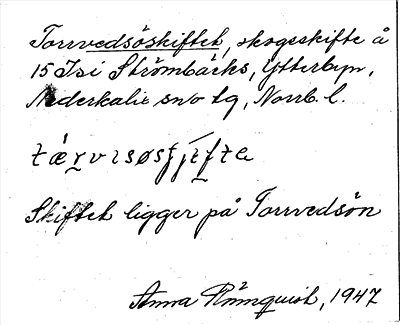 Torrvedsöskiftet, skogsskifte å
15 Isi Strömbäcks, Ytterbyn,
Nederkalix sn, Norrb. l.
Skiftet ligger på Torrvedsön
Anna Rönnquist, 1947